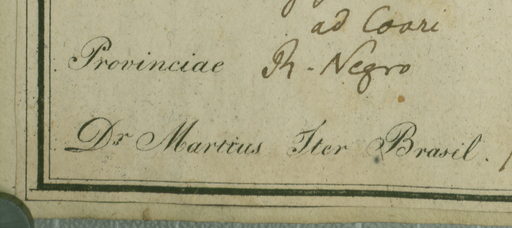 ad Coari
Provinciae R. Negro
Dr Martius Iter Brasil.